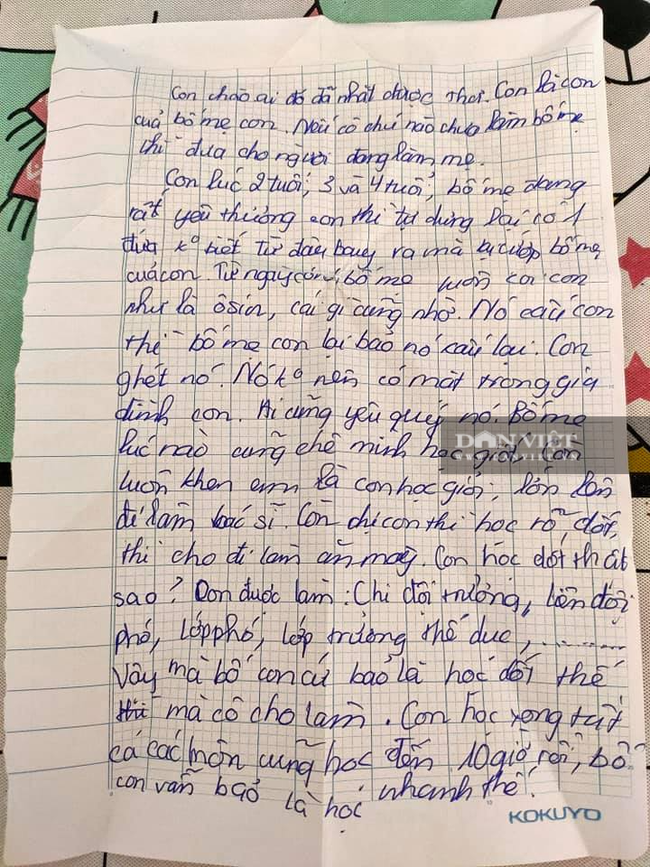 Con chào ai đó đã nhặt được thư. Con là con
của bố mẹ con. Nếu cô chú nào chưa làm bố mẹ
thì đưa cho người đang làm mẹ.
Con lúc 2 tuổi, 3 và 4 tuổi, bố mẹ đang
rất yêu thương con thì tự dưng lại có 1
đứa ko biết từ đâu bay ra mà lại cướp bố mẹ
của con. Từ ngày có nó, bố mẹ luôn coi con
như là ôsin, cái gì cũng nhờ. Nó cấu con
thì bố mẹ con lại bảo nó cấu lại. Con
ghét nó. Nó ko nên có mặt trong gia
đình con. Ai cũng yêu quý nó. Bố mẹ
lúc nào cũng chê mình học giỏi, còn
luôn khen em là con học giỏi, lớn lên
đi làm bác sĩ. Còn chị con thì học rõ dốt,
thì cho đi làm ăn mày. Con học dốt thật
sao? Con được làm: Chi đội trưởng, liên đội
phó, lớp phó, lớp trưởng thể dục, ..........
Vậy mà bố con cứ bảo là học dốt thế
mà cô cho làm. Con học xong tất
cả các môn cũng học đến 10 giờ rồi, bố
con vẫn bảo là học nhanh thế!
KOKUYO
DÂN VIỆT